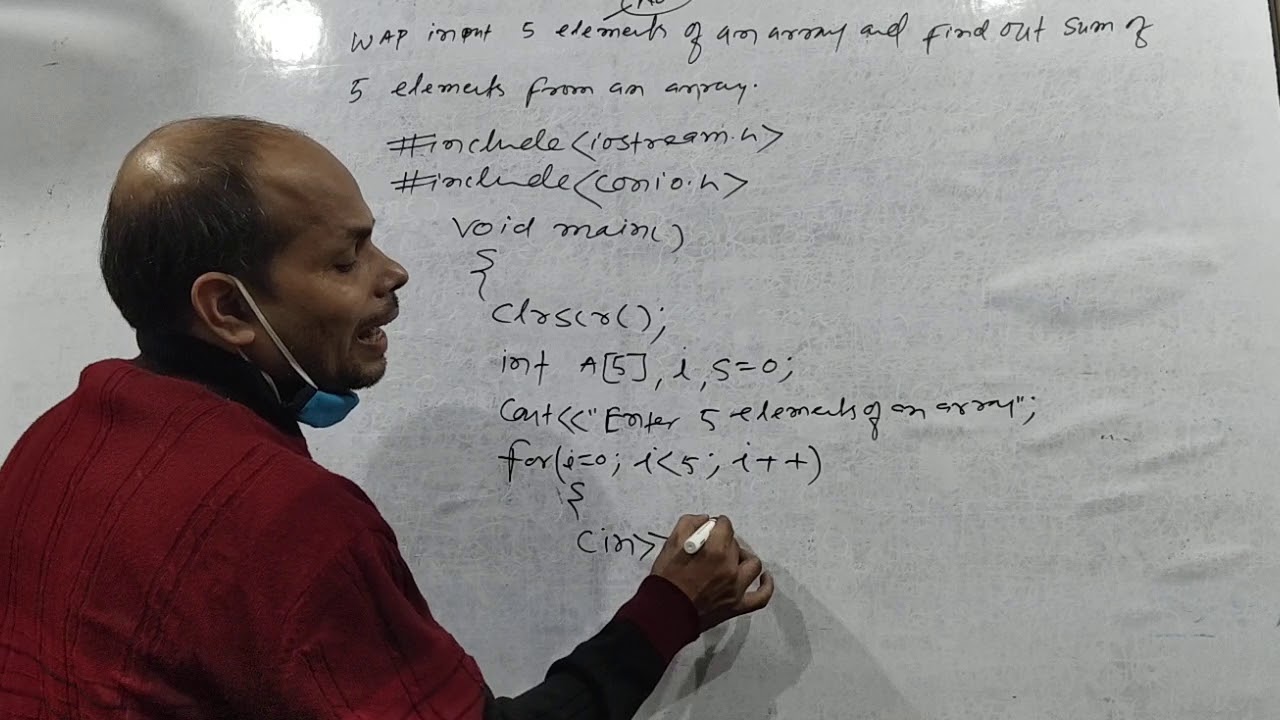 WAP input 5 elements of an array and find out sum of
5 elements from an array.
#include<iostream.h>
#include<conio.h>
void main()
{
clrscr();
int A[5], i, S=0;
Cout<<"Enter 5 elements of an array";
for(i=0; i<5; i++)
{
Cin>>